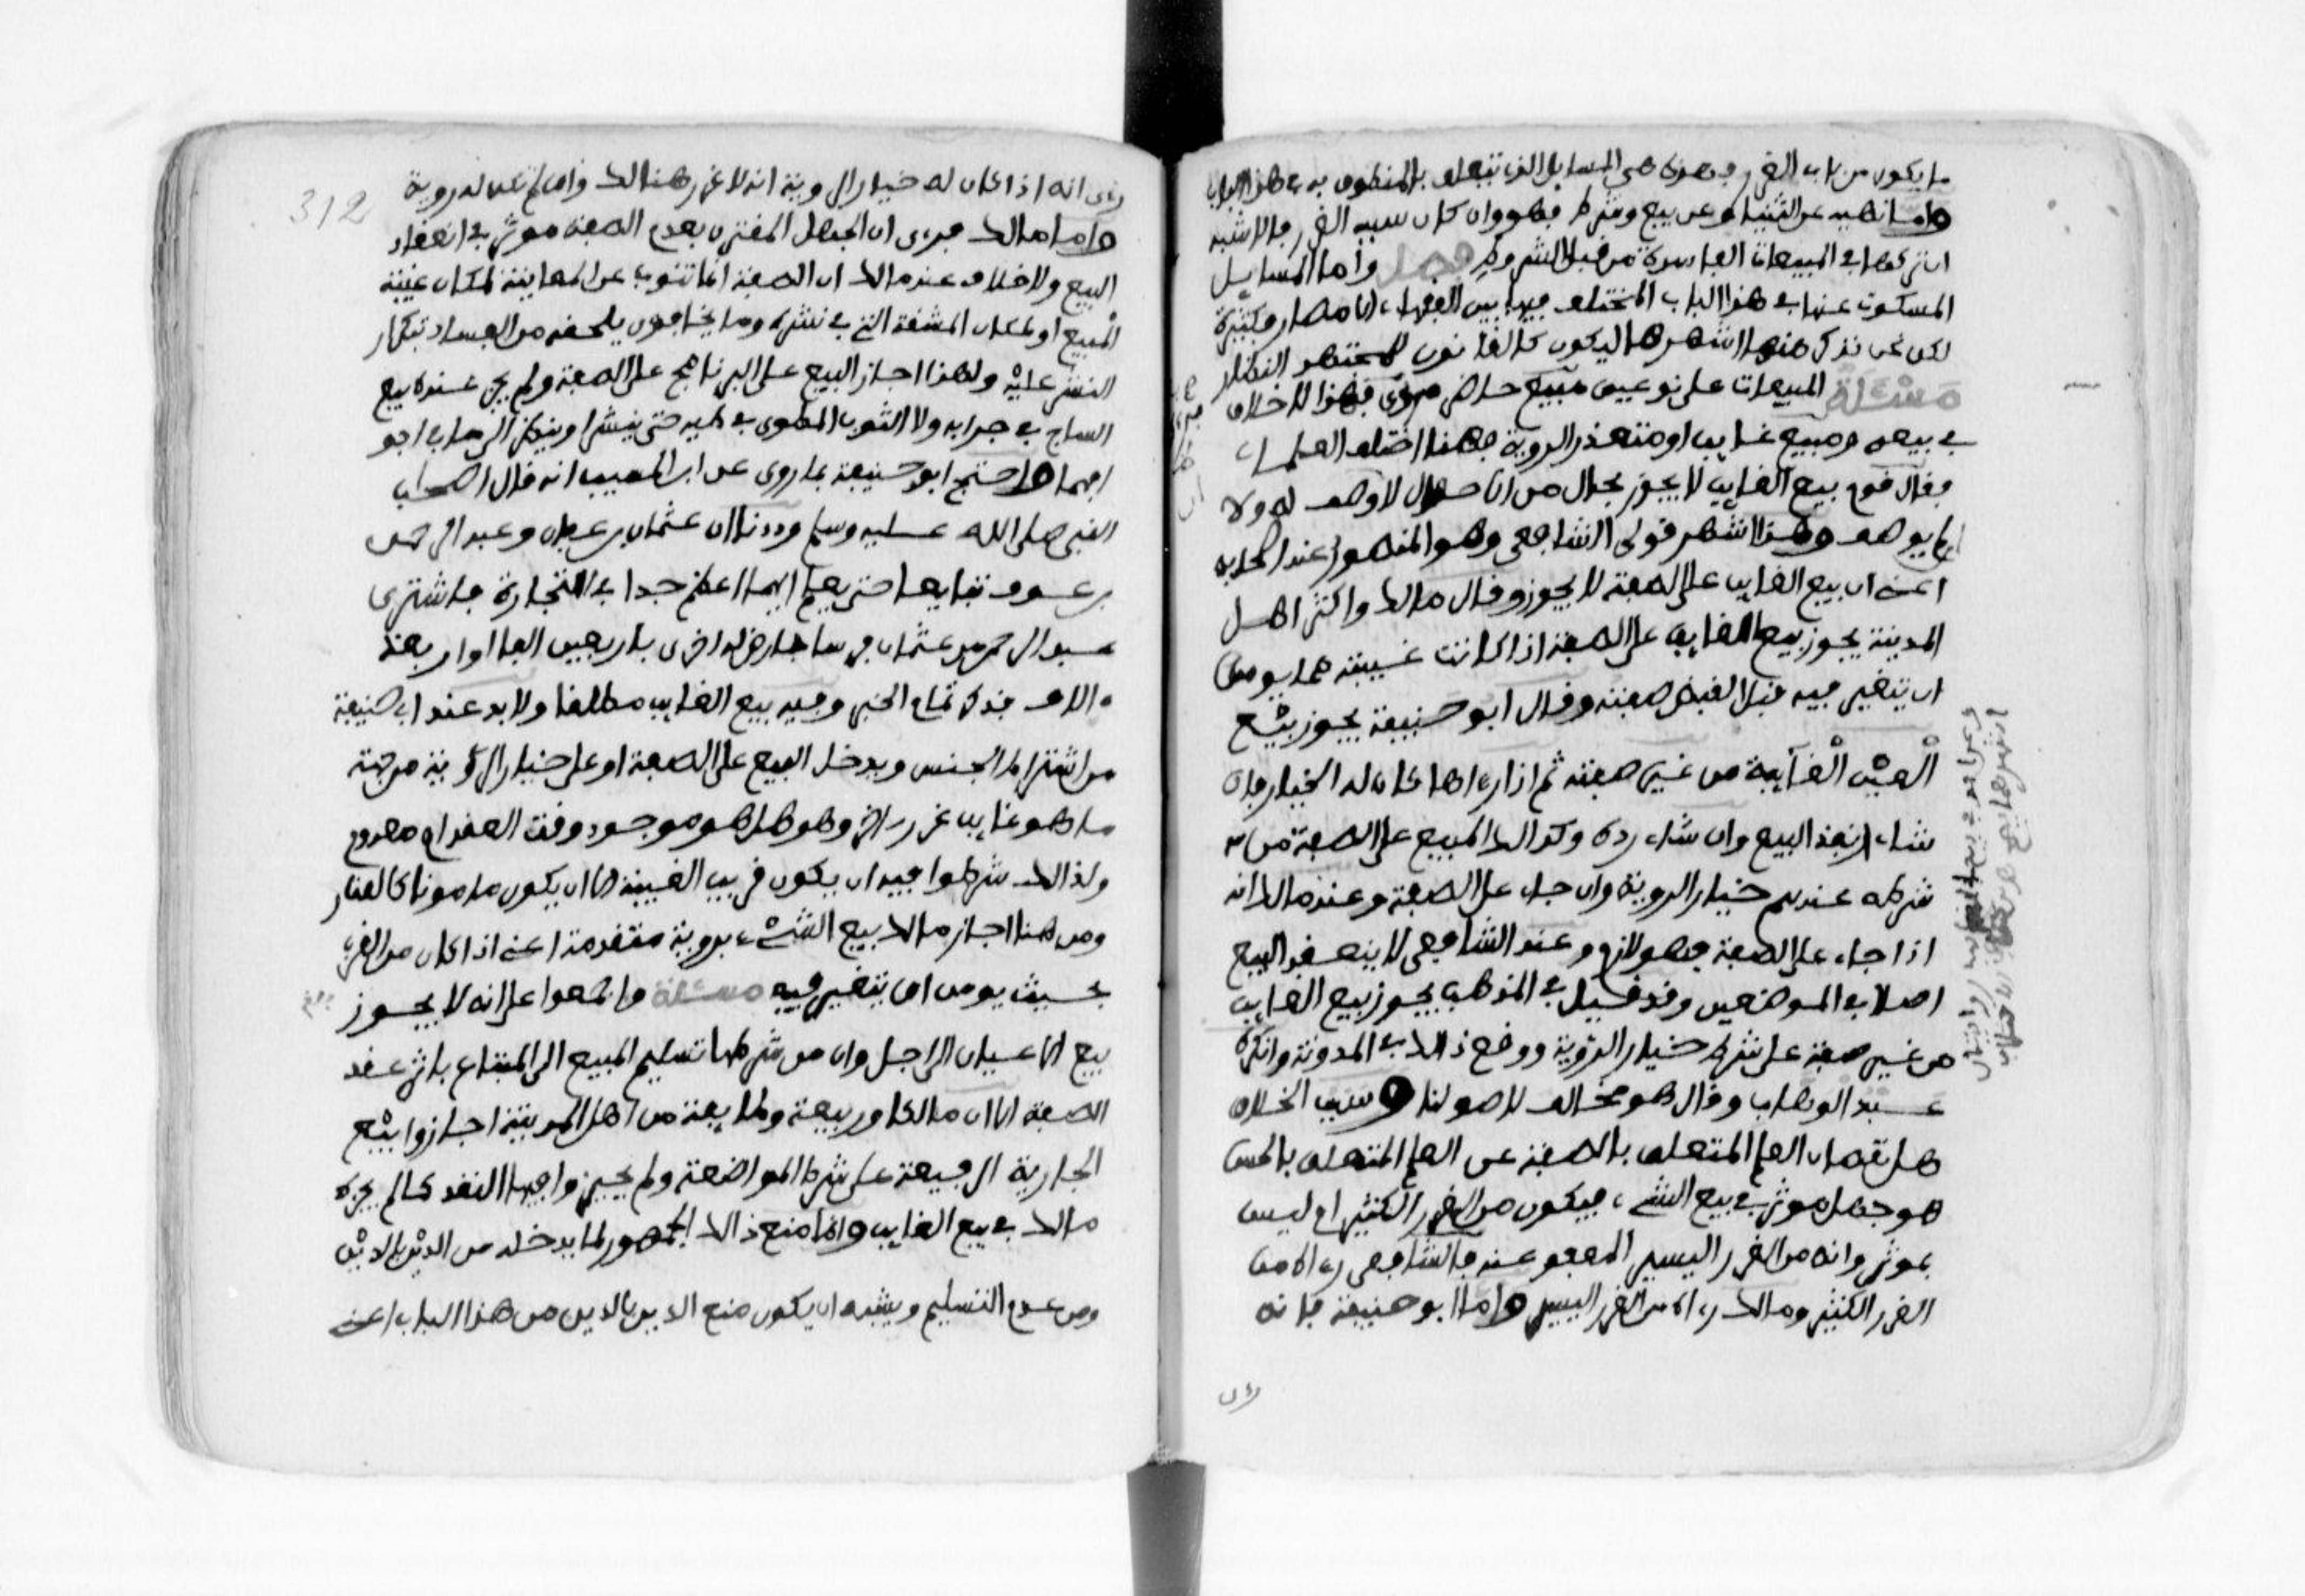 ما يكون من باب الغرر فهذه هي المسايل التي تتعلق بالمنطوق به في هذا الباب
وأما نهيه عن الثنيا وعن بيع وشرط فهو وان كان سببه الغرر فالاشبه
ان نذكرها في المبيعات الفاسدة من قبل الشروط فصل وأما المسايل
المسكوت عنها في هذا الباب المختلف فيها بين الفقهاء الامصار فكثيرة
لكن نحن نذكر منها اشهرها ليكون كالقانون للمجتهد النظار
مَسْئَلَة المبيعات على نوعين مبيع حاضر مرئي فهذا لا خلاف
في بيعه ومبيع غايب او متعذر الروية فهنا اختلف العلماء
فقال قوم بيع الغايب لا يجوز بحال من الاحوال لا وصف له ولا
لم يوصف وهذا اشهر قولي الشافعي وهو المنصور عند اصحابه
اعني ان بيع الغايب على الصفة لا يجوز وقال مالك واكثر اهل
المدينة يجوز بيع الغايب على الصفة اذا كانت غيبته مما يومن
ان تتغير فيه قبل القبض صفته وقال ابو حنيفة يجوز بيْع
الْعيْن الْغآيبة من غير صفة ثم اذا رءاها كان له الخيار فان
شاء انفذ البيع وان شاء رده وكذالك المبيع على الصفة من
شرطه عندهم خيار الروية وان جاء على الصفة وعند مالك انه
اذا جاء على الصفة فهو لازم وعند الشافعي لا ينعقد البيع
اصلا في الموضعين وقد قيل في المذهب يجوز بيع الغايب
من غير صفة على شرط خيار الروية ووقع ذالك في المدونة وانكره
عبد الوهاب وقال هو مخالف لاصولنا وسبب الخلاف
هل نقصان العلم المتعلق بالصفة عن العلم المتعلق بالحس
هو جهل موثر في بيع الشيء فيكون من الغرر الكثير ام ليس
بموثر وانه من الغرر اليسير المعفو عنه فالشافعي رءاه من
الغرر الكثير ومالك رءاه من الغرر اليسير وأما ابو حنيفة فانه
رءى
312
رءى انه اذا كان له خيار الروية انه لا غرر هنالك وان لم تكن له روية
وأما مالك فرءى ان الجهل المقترن بعدم الصفة موثر في انعقاد
البيع ولا خلاف عند مالك ان الصفة انما تنوب عن المعاينة لمكان غيبة
المبيع او لمكان المشقة التي في نشره وما يخاف ان يلحقه من الفساد بتكرار
النشر عليْه ولهذا اجاز البيع على البرنامج على الصفة ولم يجز عنده بيع
السلاح في جرابه ولا الثوب المطوي في طيه حتى ينشر او ينظر الى ما في اجو
افهما واحتج ابو حنيفة بما روى عن ابن المسيب انه قال اصحاب
النبي صلى الله عليه وسلم وددنا ان عثمان بن عفان وعبد الرحمن
بن عوف تبايعا حتى يعلم ايهما اعظم جدا في التجارة فاشترى
عبد الرحمن من عثمان فرسا بارض له اخرى باربعين الفا او اربعة
ءالاف فذكر تمام الخبر وفيه بيع الغايب مطلقا ولا بد عند ابي حنيفة
من اشتراط الجنس ويدخل البيع على الصفة او على خيار الروية من جهة
ما هو غايب غرر ءاخر وهو هل هو موجود وقت العقد ام معدوم
ولذالك شرطوا فيه ان يكون قريب الغيبة الا ان يكون مامونا كالعقار
ومن هنا اجاز مالك بيع الشيْء بروية متقدمة اعني اذا كان من القرب
بحيث يومن ان تتغير فيه مسئلة واجمعوا على انه لا يجوز
بيع الاعيان الى اجل وان من شرطها تسليم المبيع الى المبتاع باثر عقد
الصفقة الا ان مالكا وربيعة وطايفة من اهل المدينة اجازوا بيْع
الجارية الرفيعة على شرط المواضعة ولم يجيزوا فيها النقد كما لم يجزه
مالك في بيع الغايب وانما منع ذالك الجمهور لما يدخله من الديْن بالديْن
ومن عدم التسليم ويشبه ان يكون منع الدين بالدين من هذا الباب اعني